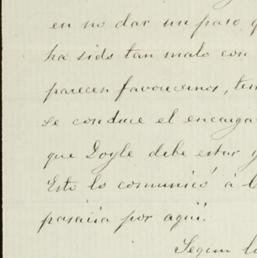 en no dar un paso
ha sido tan malo con
parecen favorecernos,
se conduce el encarga
que Doyle debe estar
Esto lo comunicó á
pasaría por aquí.
Segun